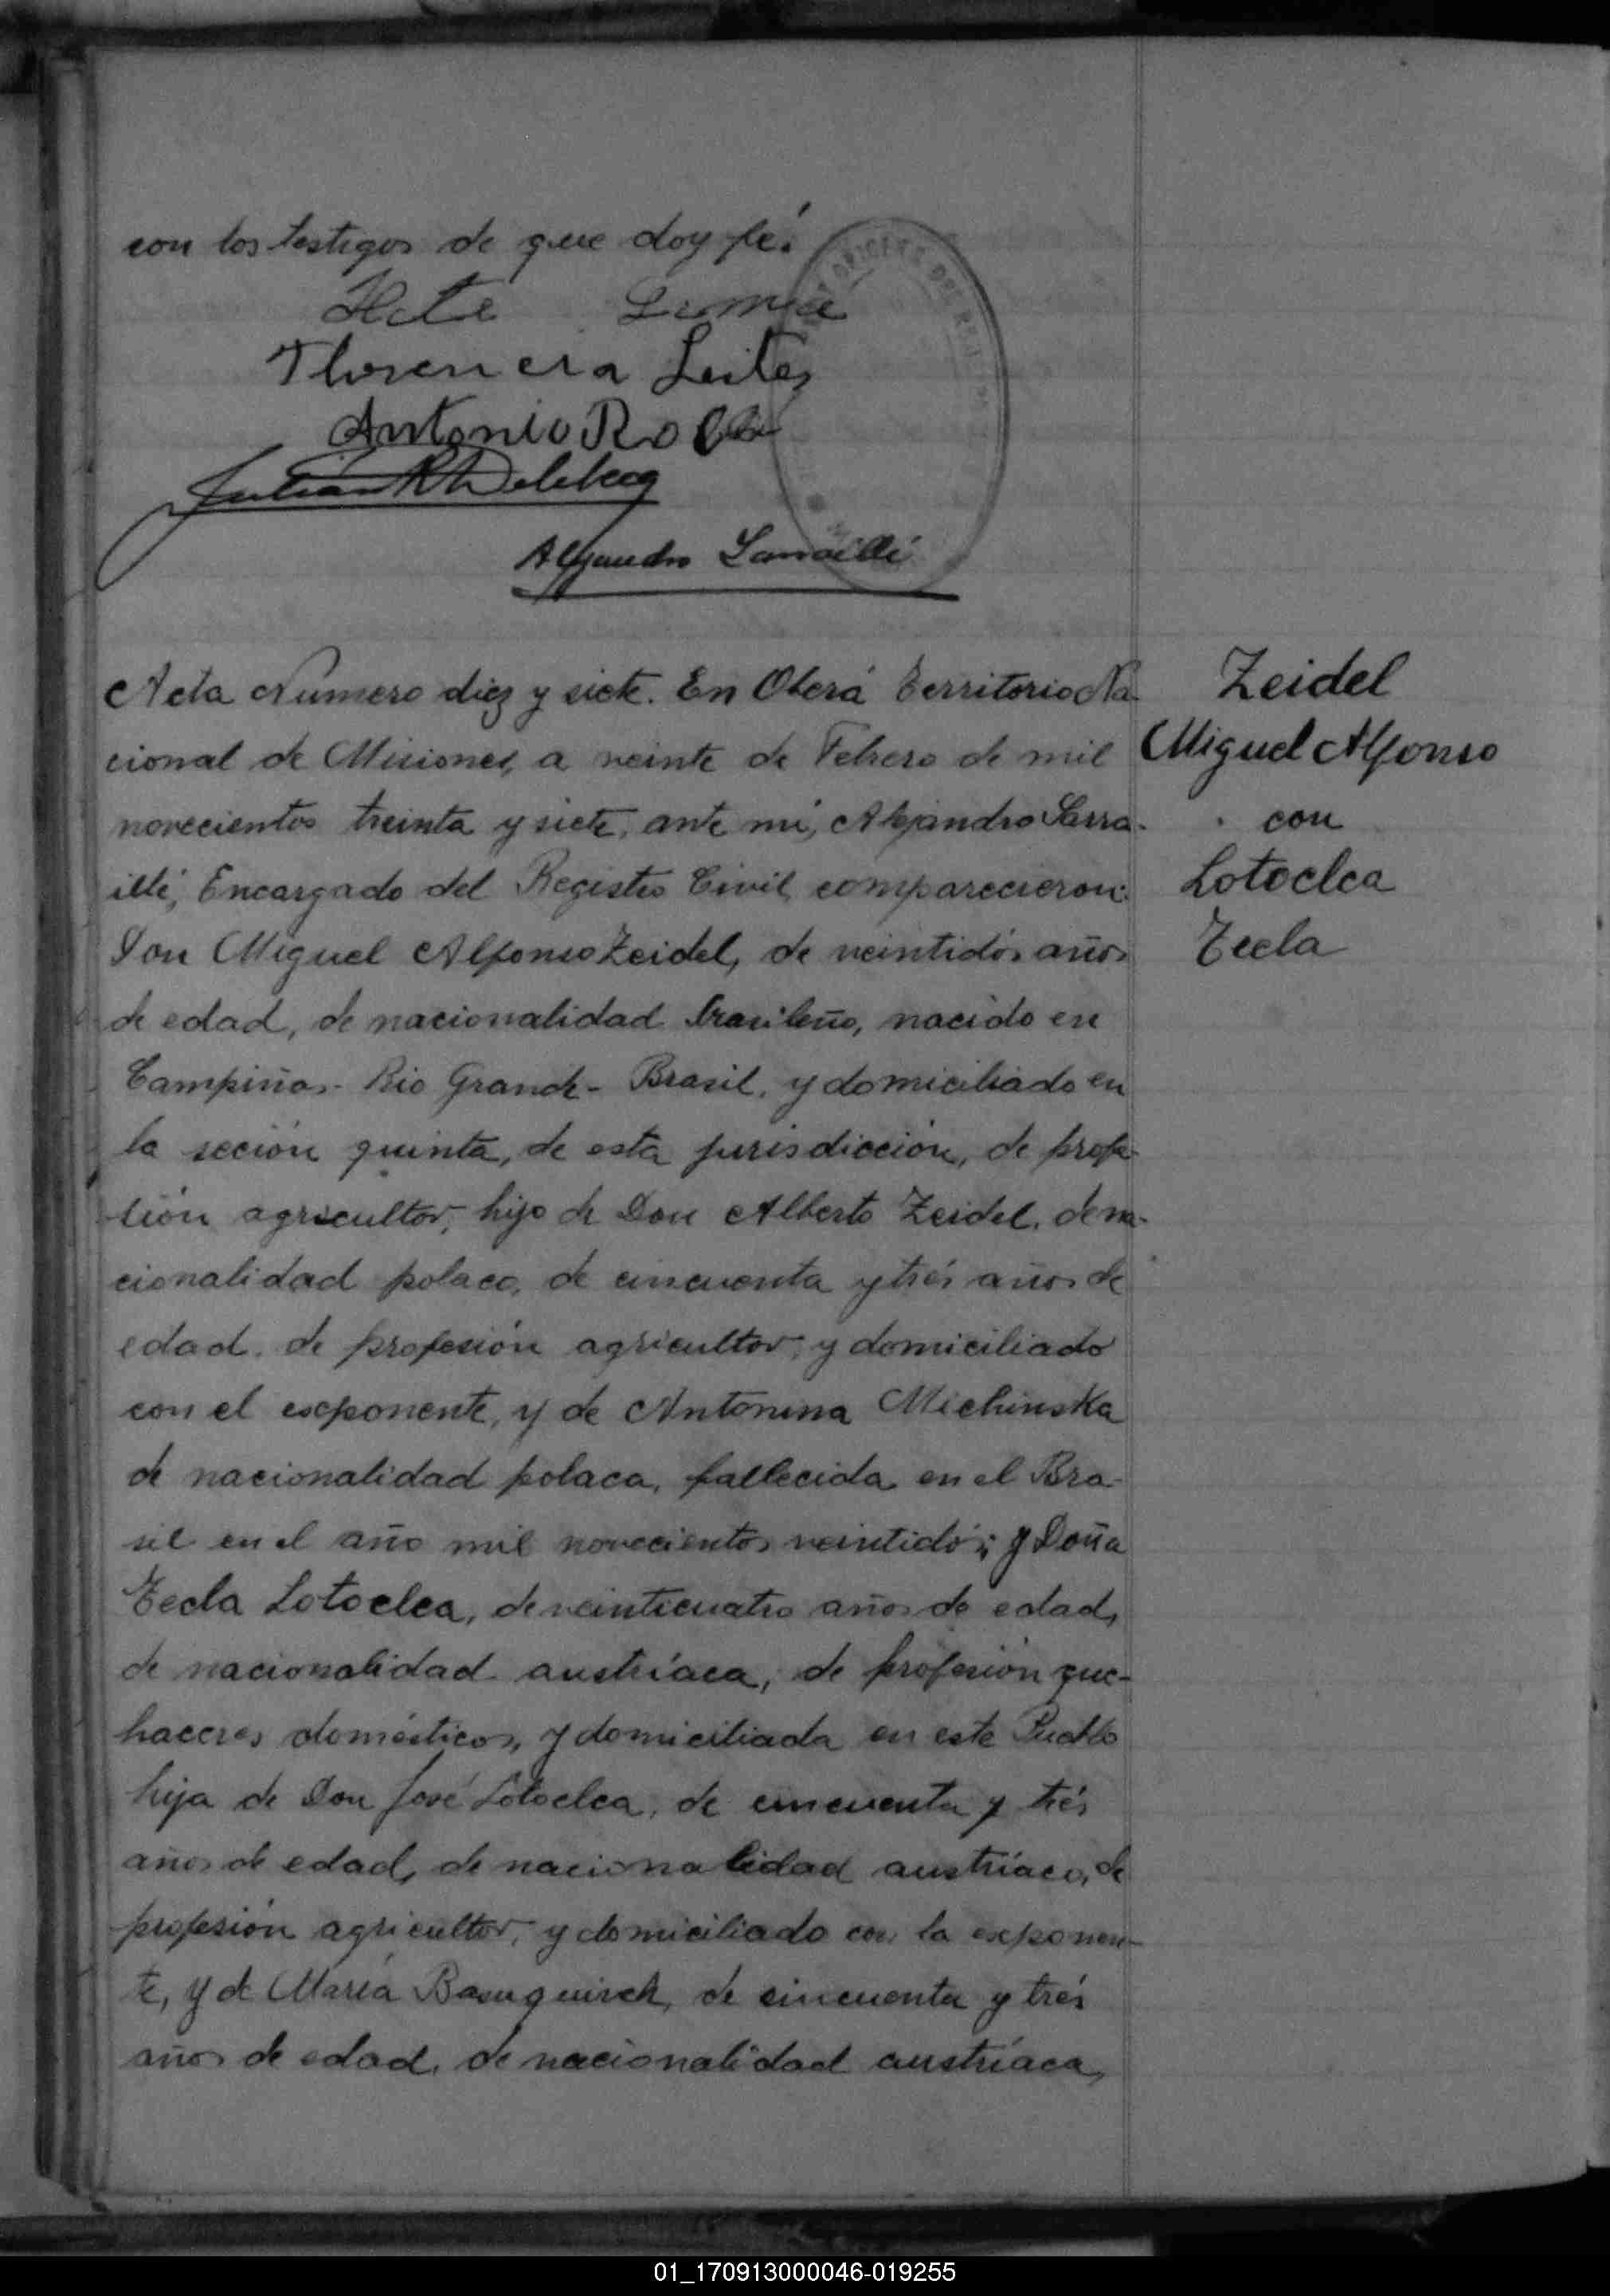 con los testigos de que doy fé.
Florencia Leites
Antonio
Julián
Alejandro Larraillé
Acta Número diez y siete. En Oberá Territorio Na-
cional de Misiones, a veinte de Febrero de mil
novecientos treinta y siete, ante mí, Alejandro Larra-
illé, Encargado del Registro Civil, comparecieron:
Don Miguel Alfonso Zeidel, de veintidós años
de edad, de nacionalidad brasileño, nacido en
Campiñas - Rio Grande - Brasil, y domiciliado en
la seción quinta, de esta jurisdicción, de profe-
sión agricultor, hijo de Don Alberto Zeidel, de na-
cionalidad polaco, de cincuenta y trés años de
edad, de profesión agricultor, y domiciliado
con el exponente, y de Antonina Michinska
de nacionalidad polaca, fallecida en el Bra-
sil en el año mil novecientos veintidós; y Doña
Tecla Lotoclca, de veinticuatro años de edad,
de nacionalidad austríaca, de profesión que-
haceres domésticos, y domiciliada en este Pueblo
hija de Don José Lotoclca, de cincuenta y trés
años de edad, de nacionalidad austríaco, de
profesión agricultor, y domiciliado con la exponen-
te, y de María de cincuenta y trés
años de edad, de nacionalidad austríaca,
Zeidel
Miguel Alfonso
con
Lotoclca
Tecla
01_170913000046-019255